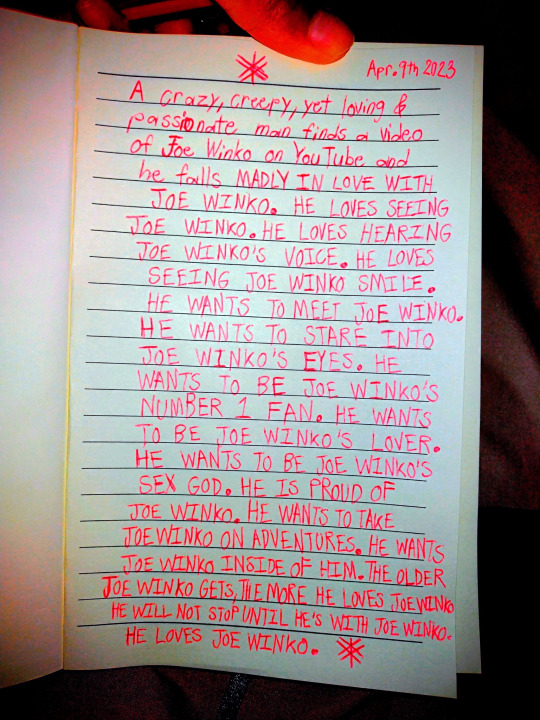 Apr. 9th 2023
A crazy, creepy, yet loving &
passionate man finds a video
of Joe Winko on YouTube and
he falls MADLY IN LOVE WITH
JOE WINKO. HE LOVES SEEING
JOE WINKO. HE LOVES HEARING
JOE WINKO'S VOICE. HE LOVES
SEEING JOE WINKO SMILE.
HE WANTS TO MEET JOE WINKO.
HE WANTS TO STARE INTO
JOE WINKO'S EYES. HE
WANTS TO BE JOE WINKO'S
NUMBER 1 FAN. HE WANTS
TO BE JOE WINKO'S LOVER.
HE WANTS TO BE JOE WINKO'S
SEX GOD. HE IS PROUD OF
JOE WINKO. HE WANTS TO TAKE
JOE WINKO ON ADVENTURES. HE WANTS
JOE WINKO INSIDE OF HIM. THE OLDER
JOE WINKO GETS, THE MORE HE LOVES JOE WINKO
HE WILL NOT STOP UNTIL HE'S WITH JOE WINKO.
HE LOVES JOE WINKO.